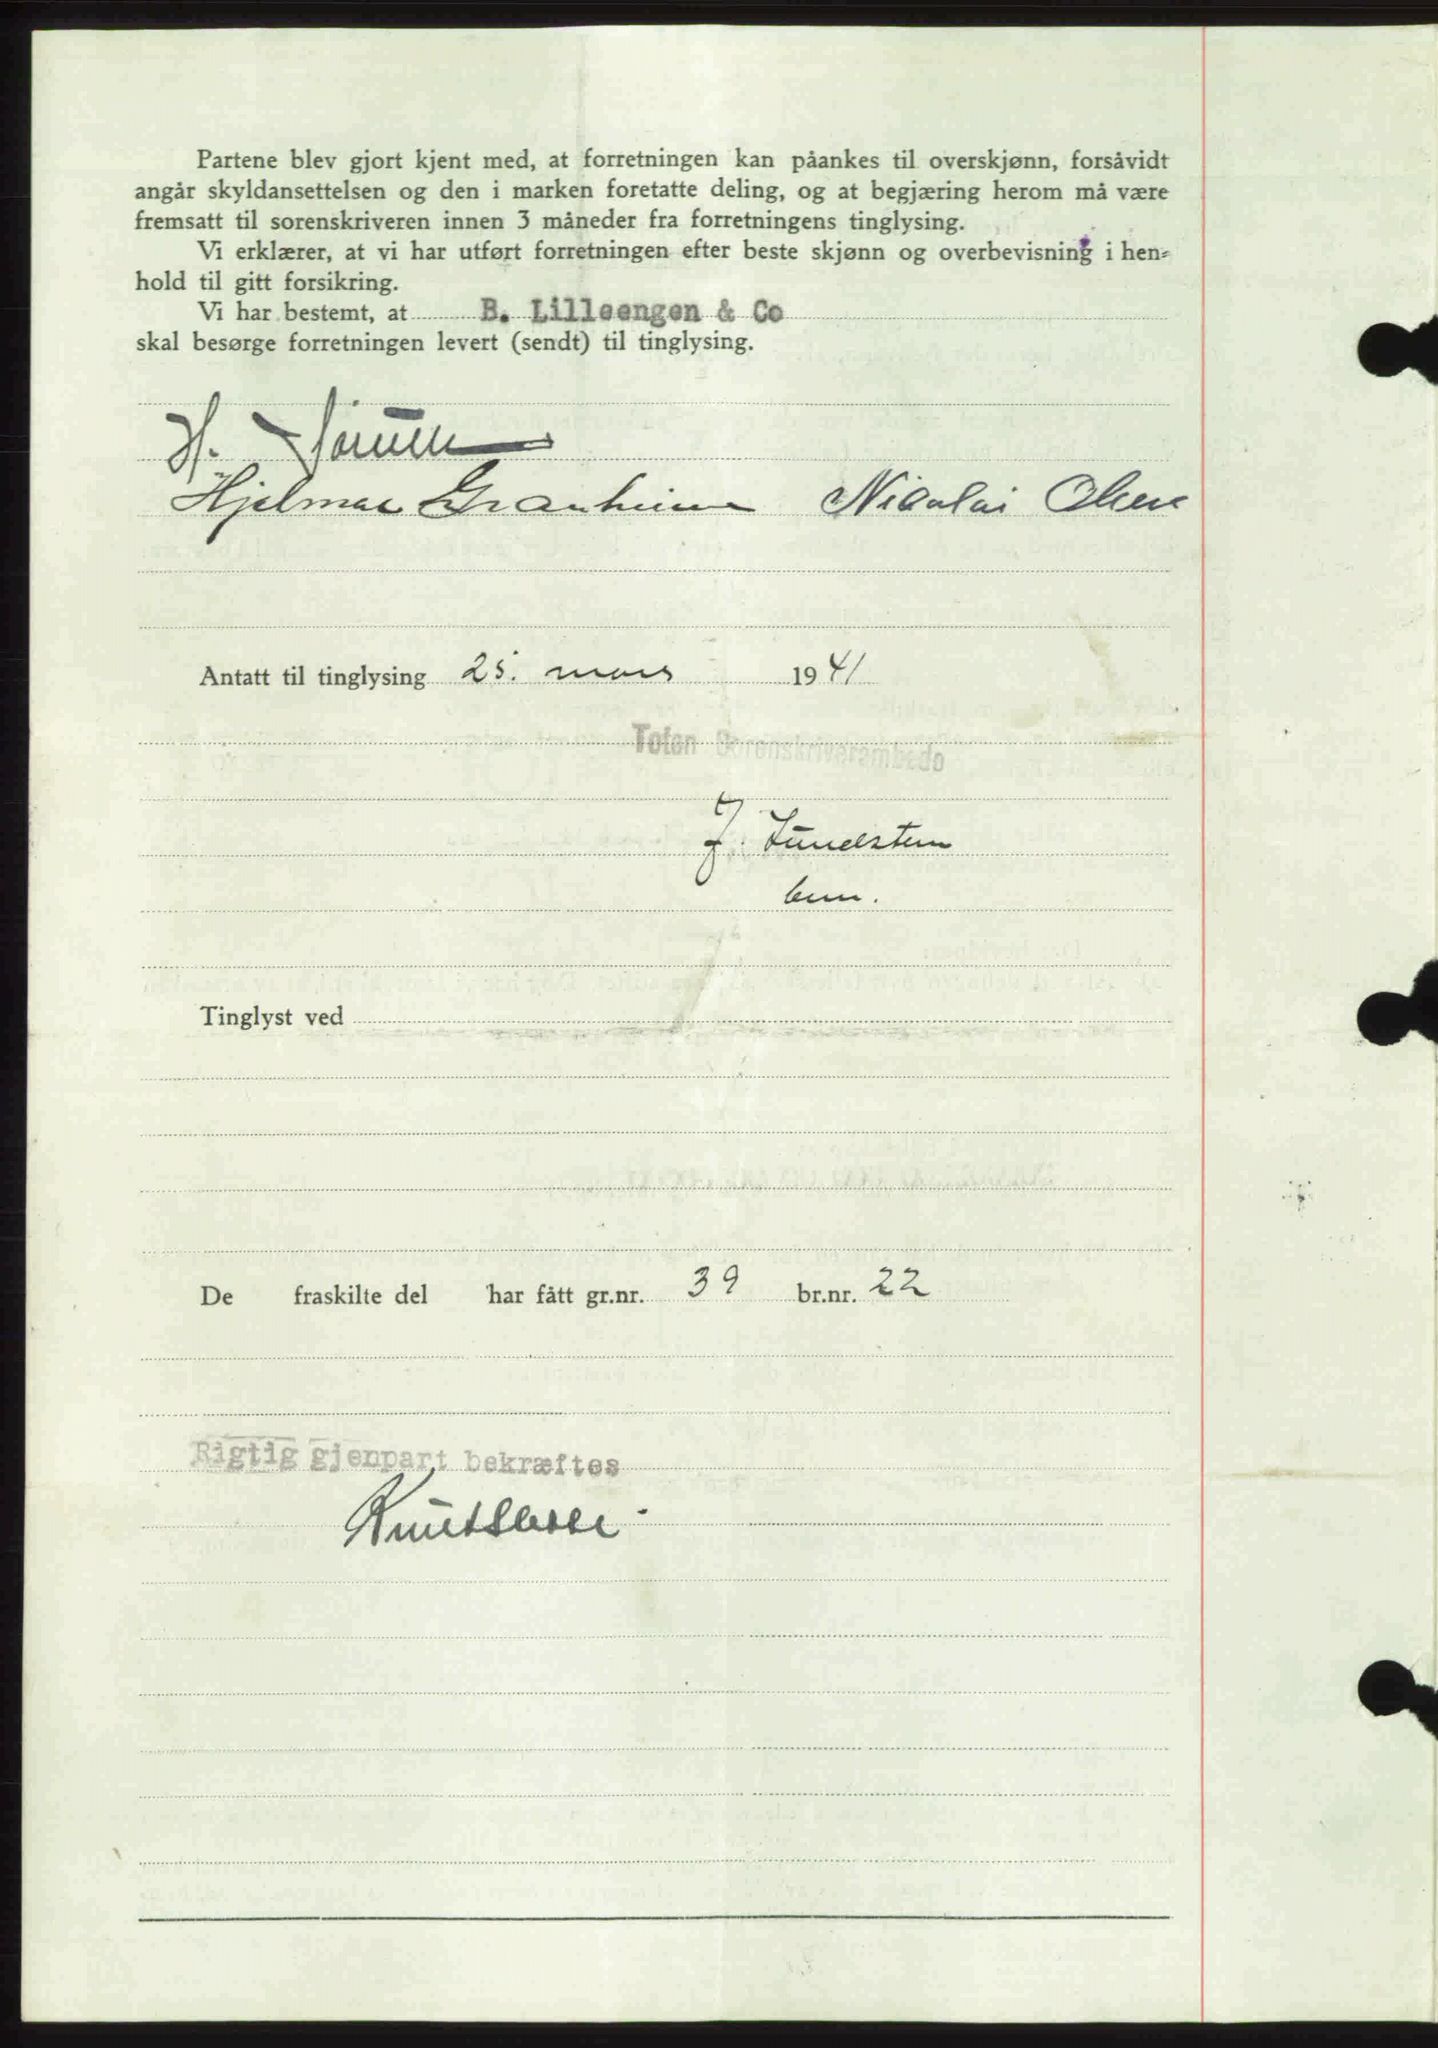 Partene blev gjort kjent med, at forretningen kan påankes til overskjønn, forsåvidt
angår skyldansettelsen og den i marken foretatte deling, og at begjæring herom må være
fremsatt til sorenskriveren innen 3 måneder fra forretningens tinglysing.
Vi erklærer, at vi har utført forretningen efter beste skjønn og overbevisning i hen-
hold til gitt forsikring.
Vi har bestemt, at B. Lilleengen & Co
skal besørge forretningen levert (sendt) til tinglysing.
H.
Hjelmar Granheim Nikolai Olsen
Antatt til tinglysing 25. mars 1941
Toten Sorenskriverembede
J. Lundstein
Tinglyst ved
De fraskilte del har fått gr.nr. 39 br.nr. 22
Rigtig gjenpart bekræftes